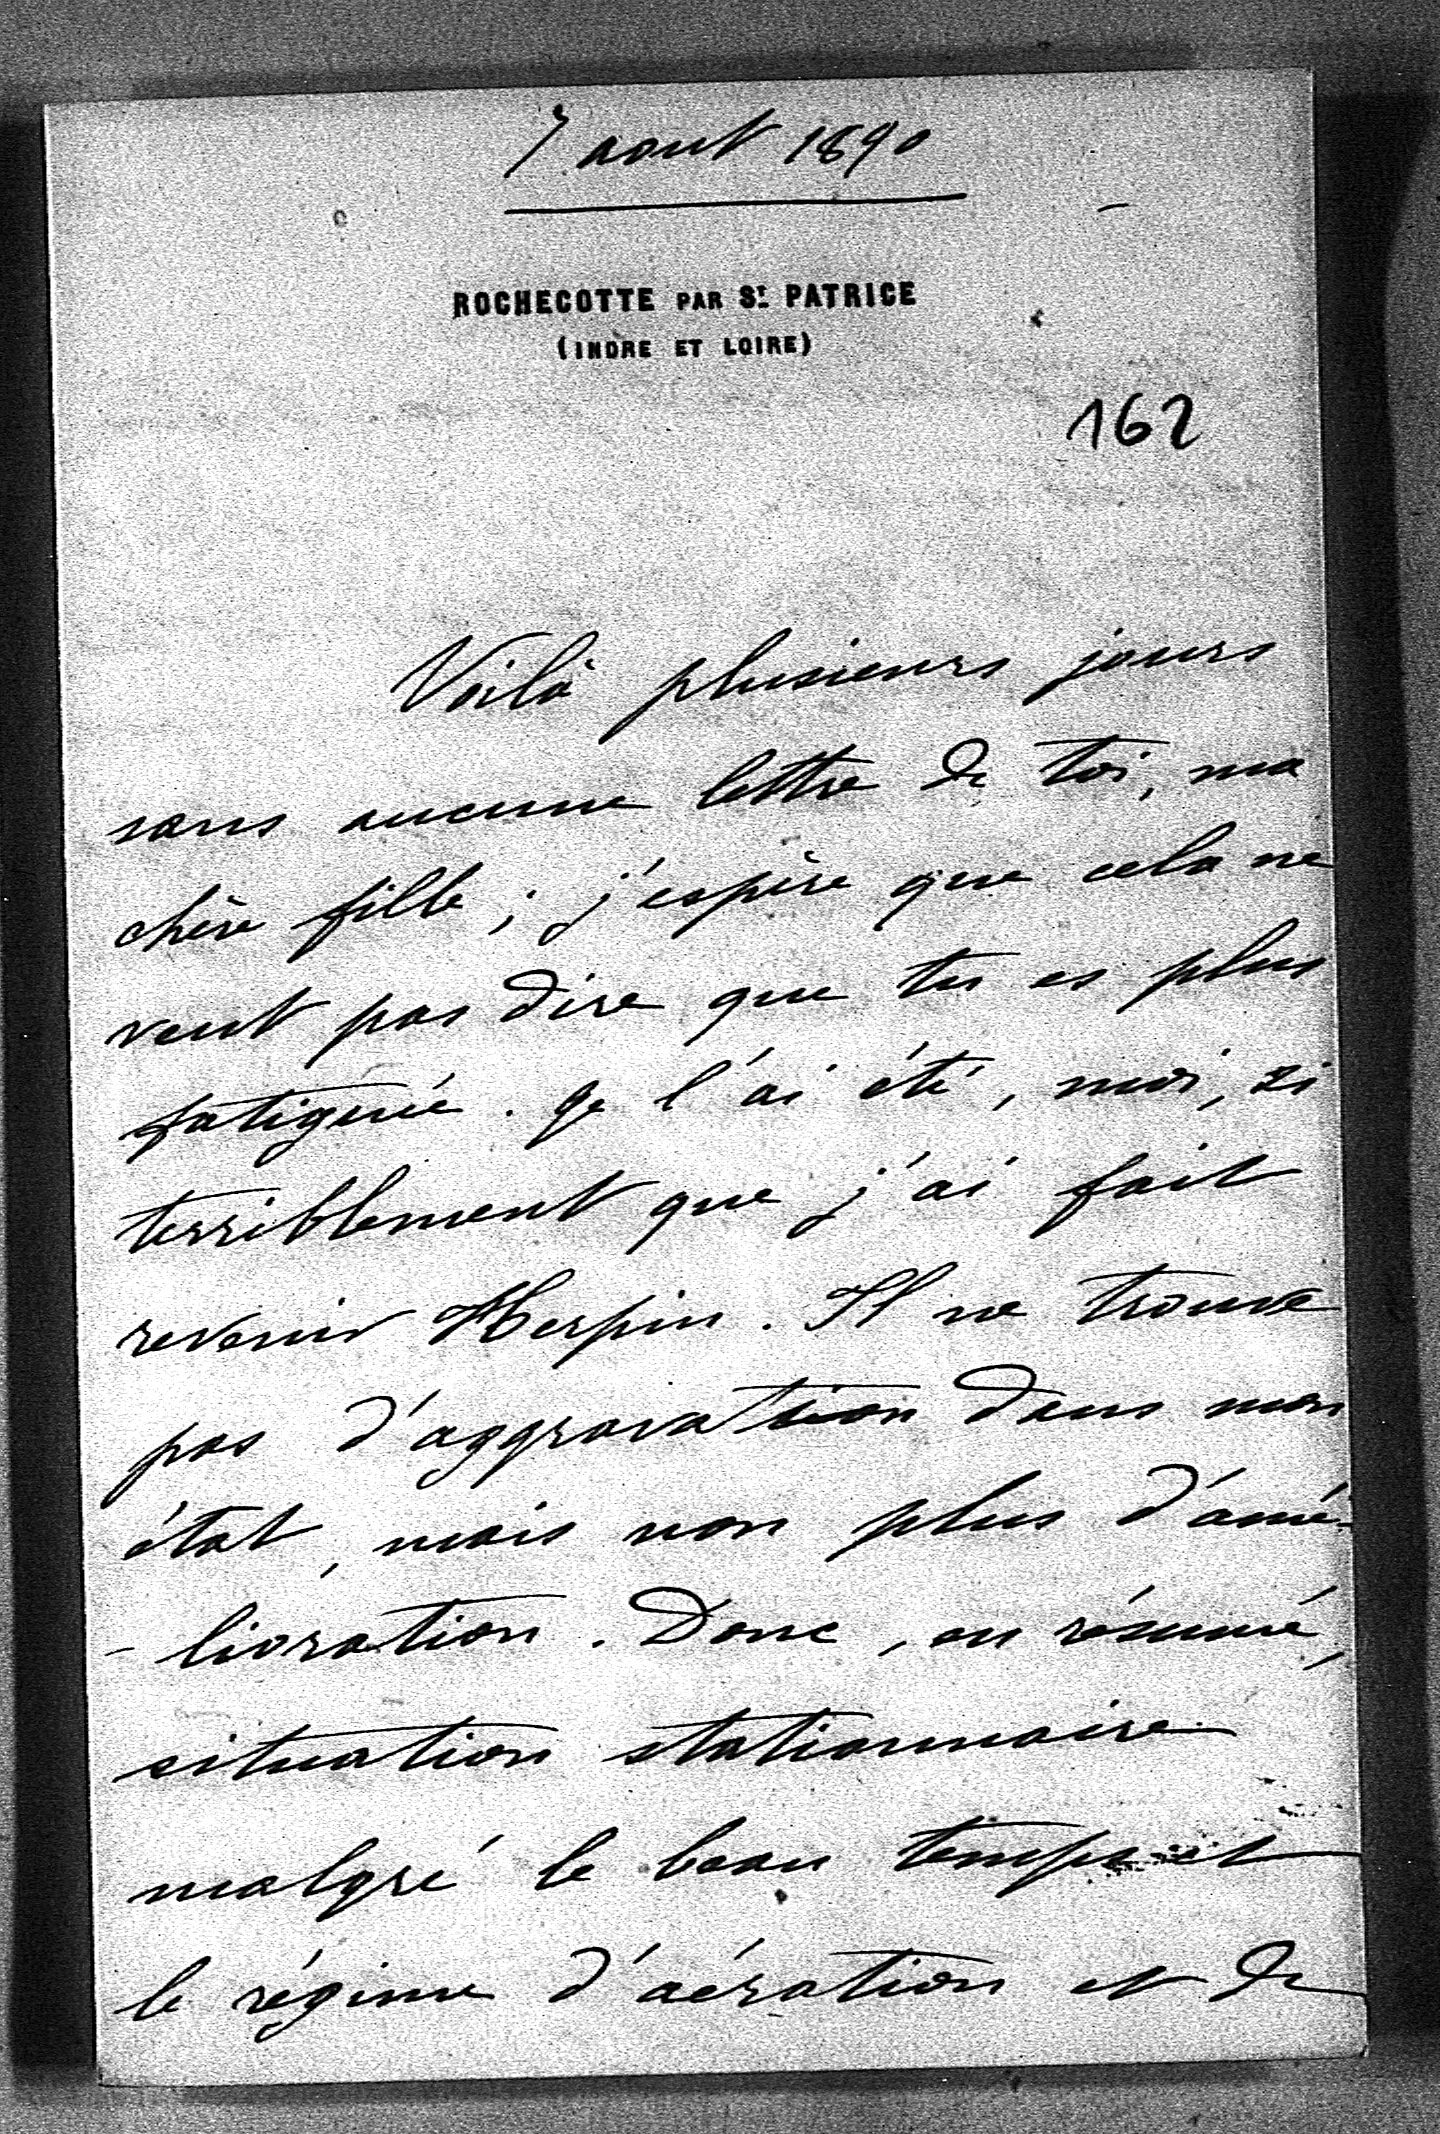 7 aout 1890
ROCHECOTTE PAR St. PATRICE
(INDRE ET LOIRE)
162
Voilà plusieurs jours
sans aucune lettre de toi, ma
chère fille ; j'espère que cela ne
veut pas dire que tu es plus
fatiguée. Je l'ai été, moi, si
terriblement que j'ai fait
revenir Herpin. Il ne trouve
pas d'aggravation dans mon
état, mais non plus d'amé-
-lioration. Donc, en résumé,
situation stationnaire
malgré le beau temps et
le régime d'aération et de